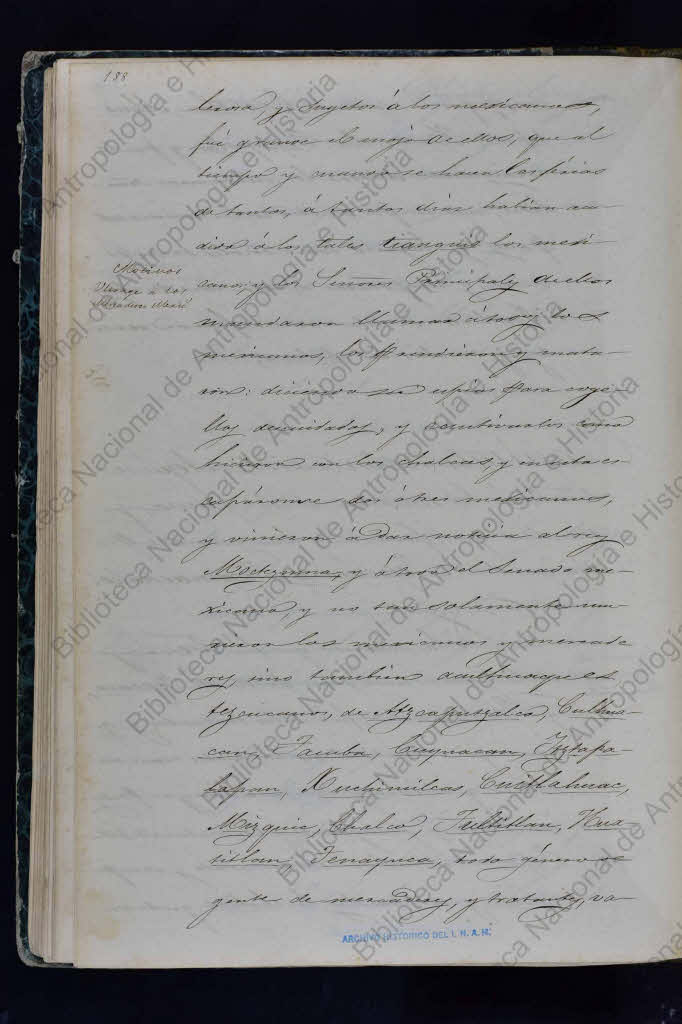 188
y sugetos á los mexicanos,
fué grande el enojo de ellos, que al
tiempo y cuando se hacen las férias
de tantos, á tantos dias habian acu-
dido á los tales tianguis los mexi-
canos; y los Señores Principales de ellos
Motivos
á los
mandaron llamar á todos los
mexicanos, los prendieron y mata-
ron: diciendo ser espias para coge-
llos descuidados, y cautivarlos como
hicieron con los chalcas, y
escapáronse dos ó tres mexicanos,
y vinieron á dar noticia al rey
Moctezuma, y á todo el Senado me-
xicano, y no tan solamente mu-
rieron los mexicanos y mercade-
res, sino tambien aculhuaques
tezcucanos, de Atzcaputzalco, Culhua-
can, Tacuba, Cuyuacan, Iztapa-
lapan, Xuchimilcas, Cuitlahuac,
Mizquic, Chalco, Tultitlan, Hua-
titlan, Tenayuca, todo género de
gente de mercaderes, y tratantes, va-
ARCHIVO HISTORICO DEL I. N. A. H.
Biblioteca Nacional de Antropología e Historia